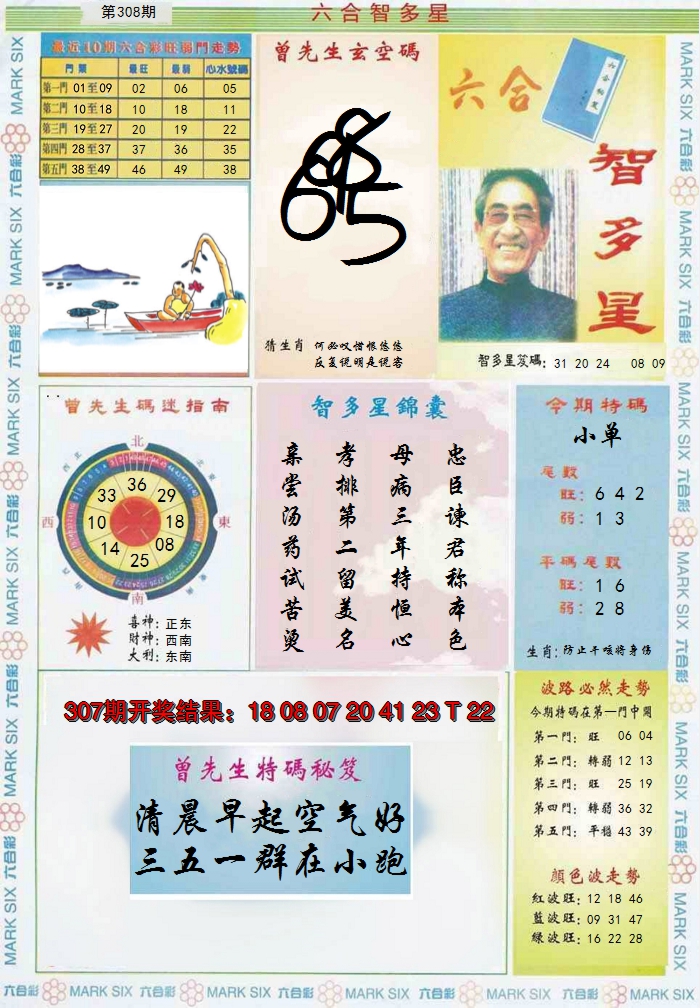 第308期
六合智多星
最近10期六合彩旺弱門走勢
門類 最旺 最弱 心水號碼
第一門 01至09 02 06 05
第二門 10至18 10 18 11
第三門 19至27 20 19 22
第四門 28至37 37 36 35
第五門 38至49 46 49 38
曾先生玄空碼
猜生肖 何必叹惜恨悠悠
反复说明是说客
六合
六合秘笈
智多星
智多星笈碼: 31 20 24 08 09
曾先生碼迷指南
北
西北
东北
33 36 29
西 10 18 東
14 25 08
西南
东南
南
喜神: 正东
財神: 西南
大利: 东南
智多星錦囊
忠臣諫君称本色
母病三年持恒心
孝排第二留美名
亲尝汤药试苦烫
今期特碼
小单
尾數
旺: 6 4 2
弱: 1 3
平碼尾數
旺: 1 6
弱: 2 8
生肖: 防止干咳将身伤
307期开奖结果: 18 08 07 20 41 23 T 22
曾先生特碼秘笈
清晨早起空气好
三五一群在小跑
波路必然走勢
今期特碼在第一門中開
第一門: 旺 06 04
第二門: 轉弱 12 13
第三門: 旺 25 19
第四門: 轉弱 36 32
第五門: 平穩 43 39
顏色波走勢
紅波旺: 12 18 46
藍波旺: 09 31 47
綠波旺: 16 22 28
MARK SIX 六合彩 MARK SIX 六合彩 MARK SIX 六合彩 MARK SIX 六合彩 MARK SIX